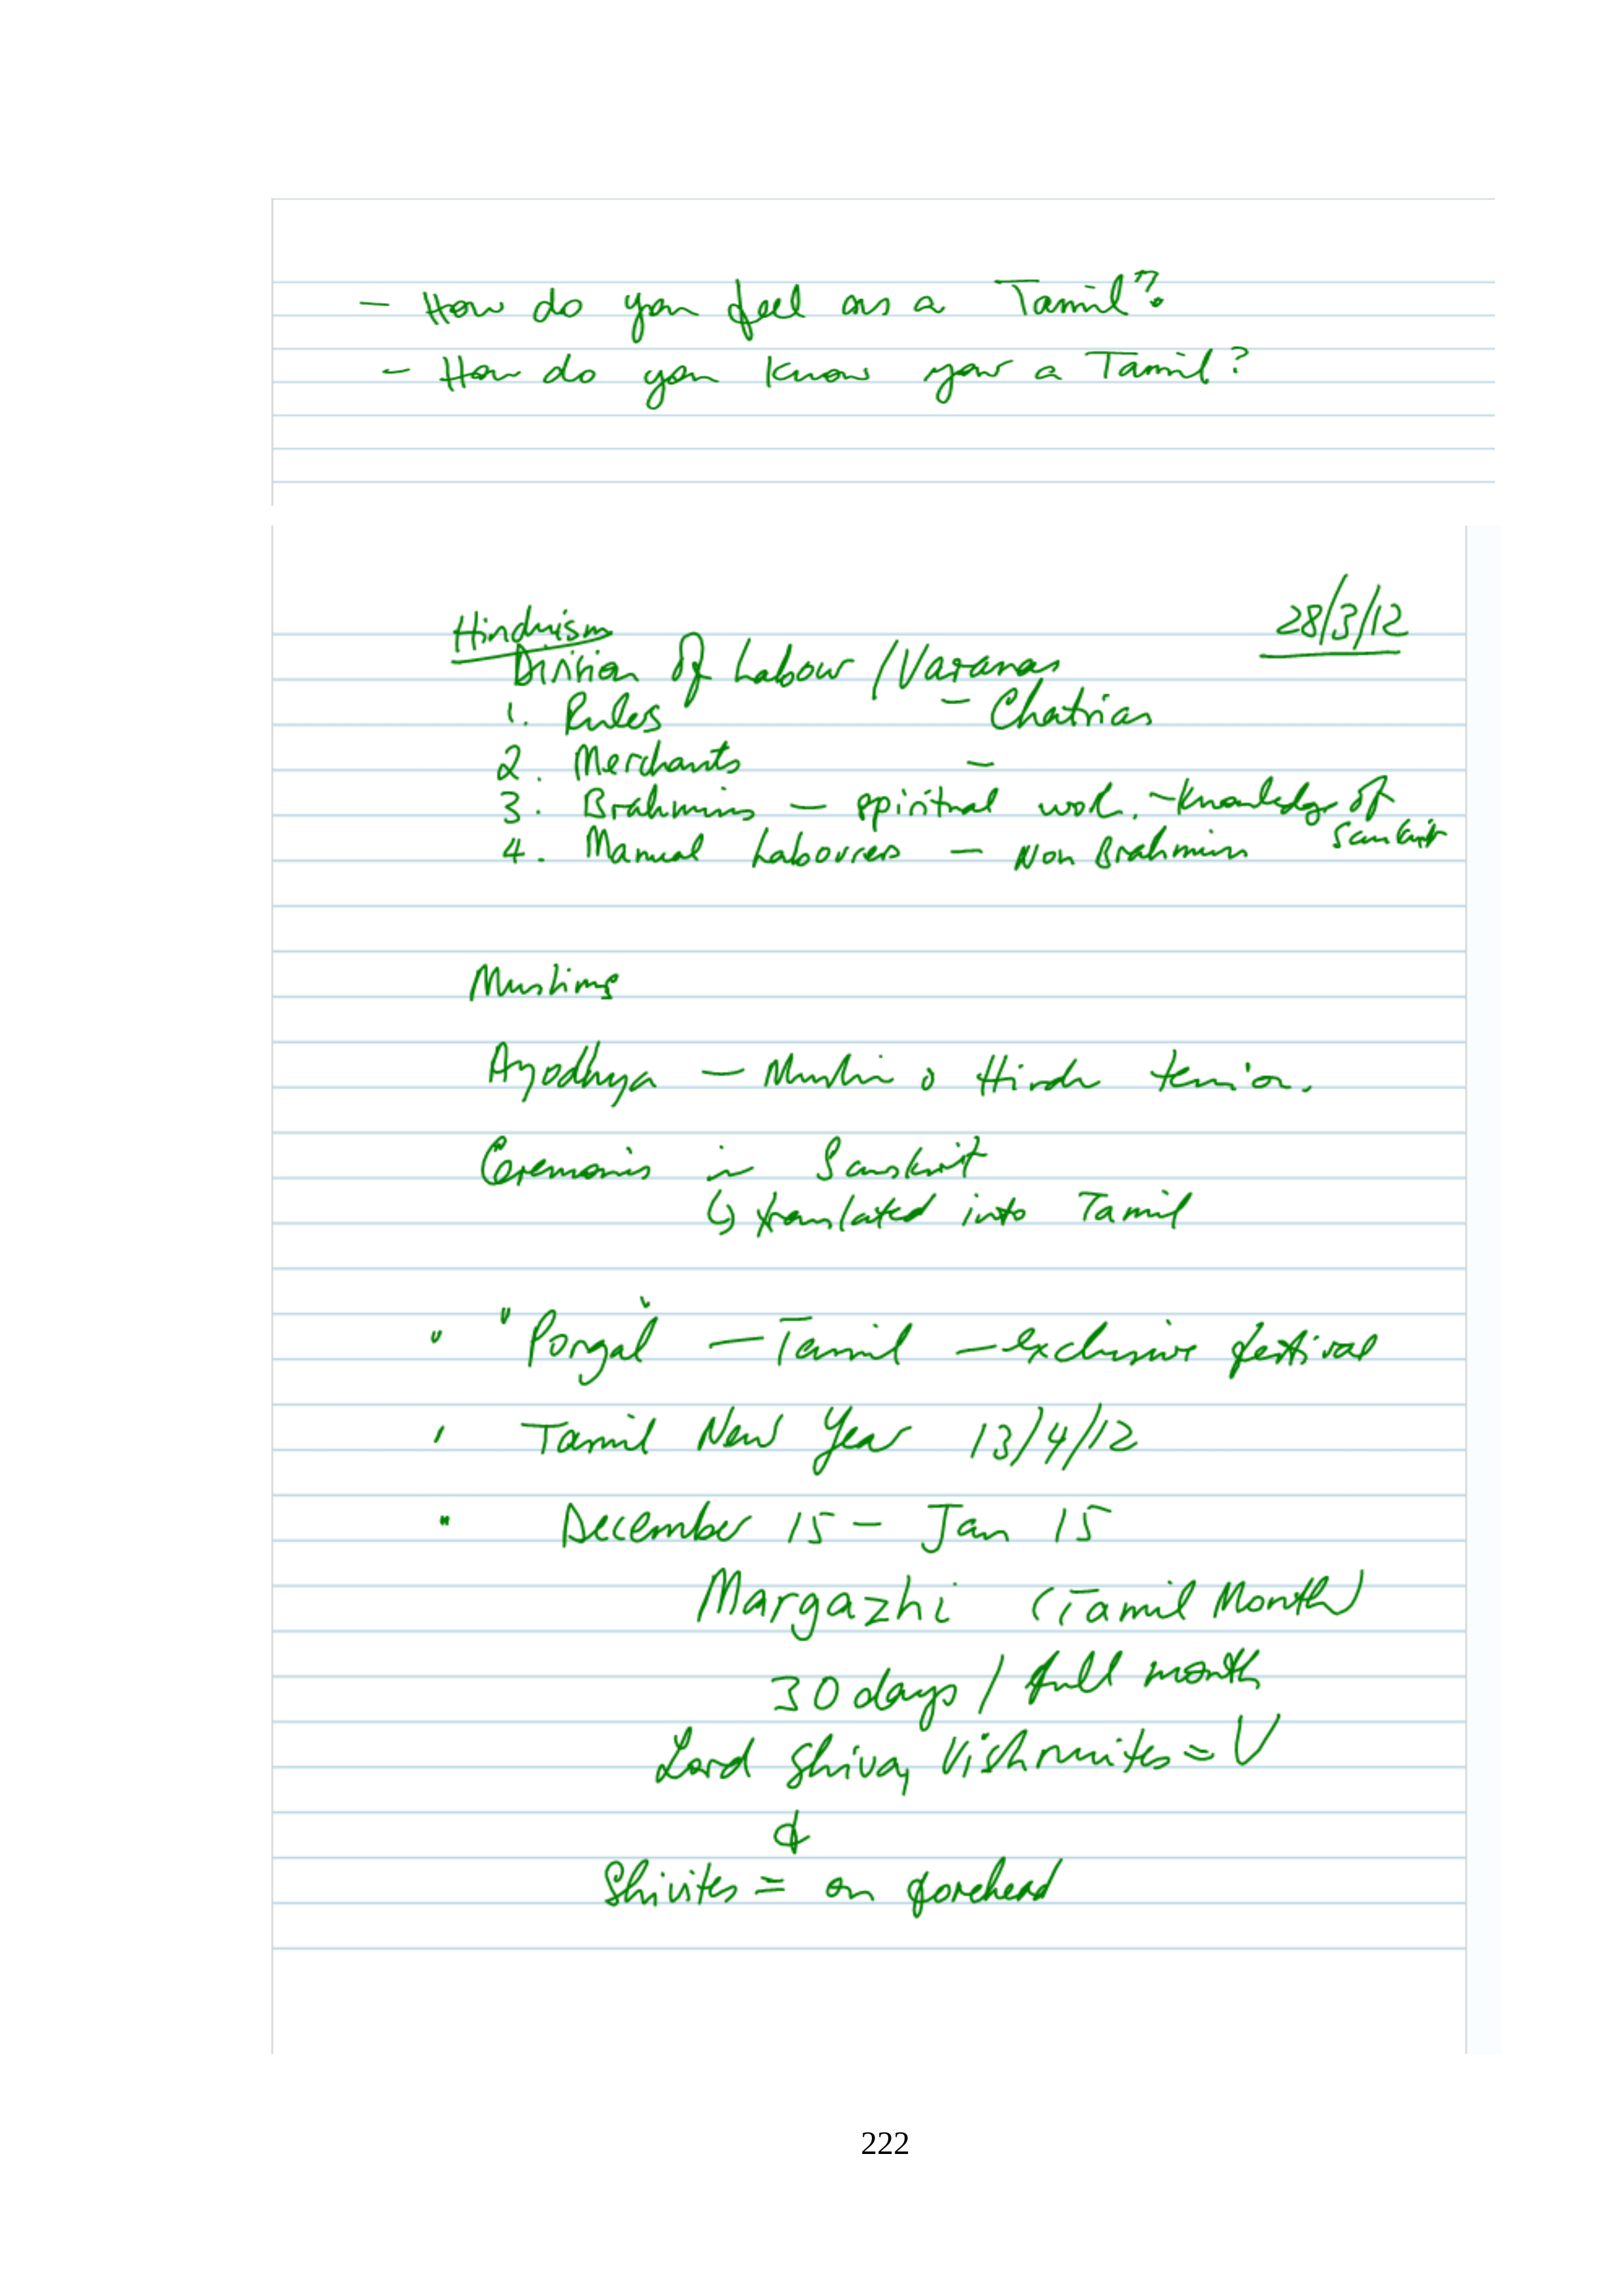 - How do you feel as a Tamil?
- How do you know your a Tamil?
28/3/12
Hinduism
Division of Labour / Varanas
1. Rules - Chatrias
2. Merchants -
3. Brahmins - spiritual work. - Knowledge of Sanskrit
4. Manual Labourers - Non Brahmins
Muslims
Ayodhya - Muslim & Hindu tension.
Ceremonies in Sanskrit
↳ translated into Tamil
" "Pongal" - Tamil - exclusive festival
' Tamil New Year 13/4/12
" December 15 - Jan 15
Margazhi (Tamil Month)
30 days / full month
Lord Shiva, Vishnuites = V
&
Shivites = on forehead
222